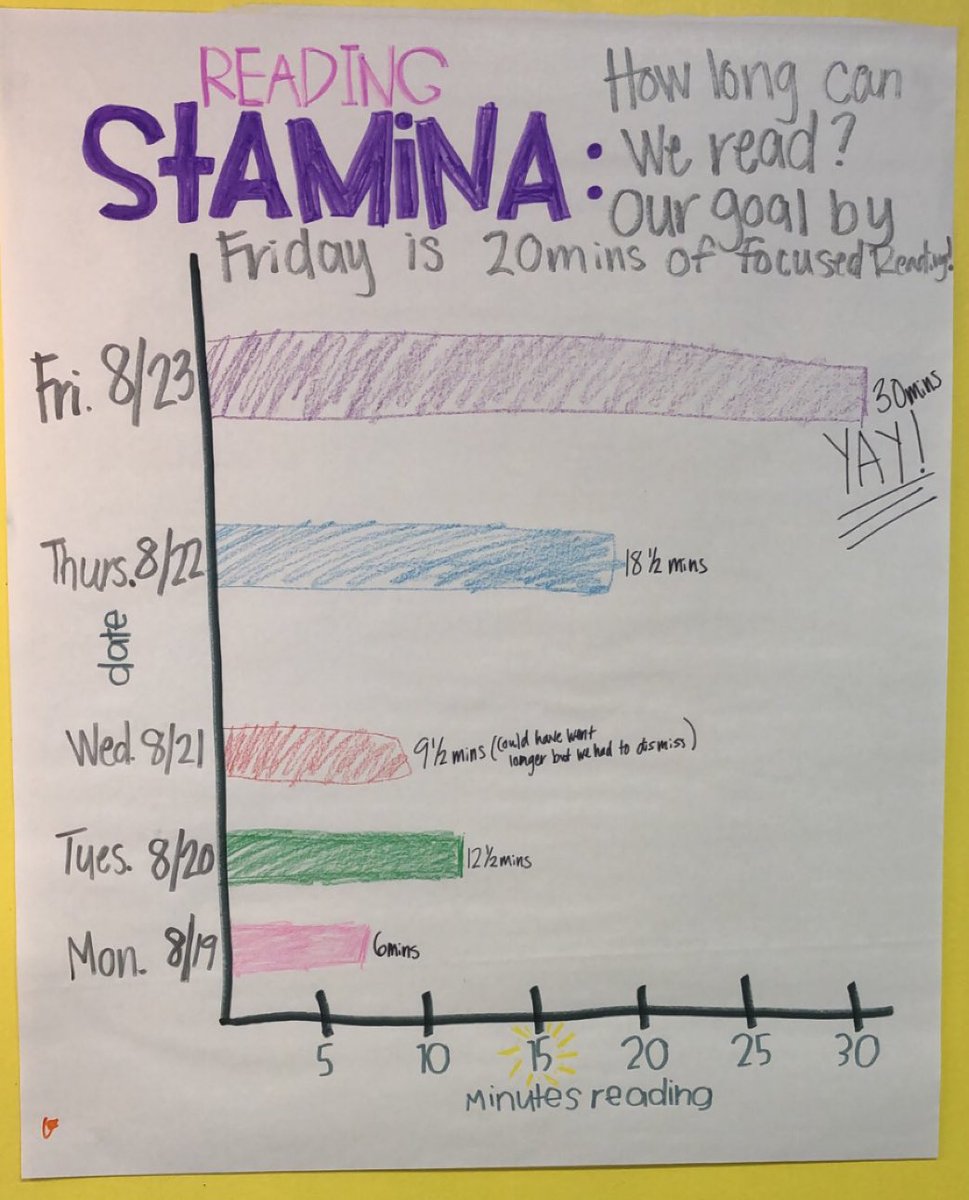 READING
StAMiNA:
How long can
We read?
Our goal by
Friday is 20mins of focused Reading!
Fri. 8/23
30mins
YAY!
Thurs. 8/22
18 ½ mins
date
Wed. 8/21
9½ mins (Could have went
longer but we had to dismiss)
Tues. 8/20
12½mins
Mon. 8/19
6mins
5 10 15 20 25 30
Minutes reading